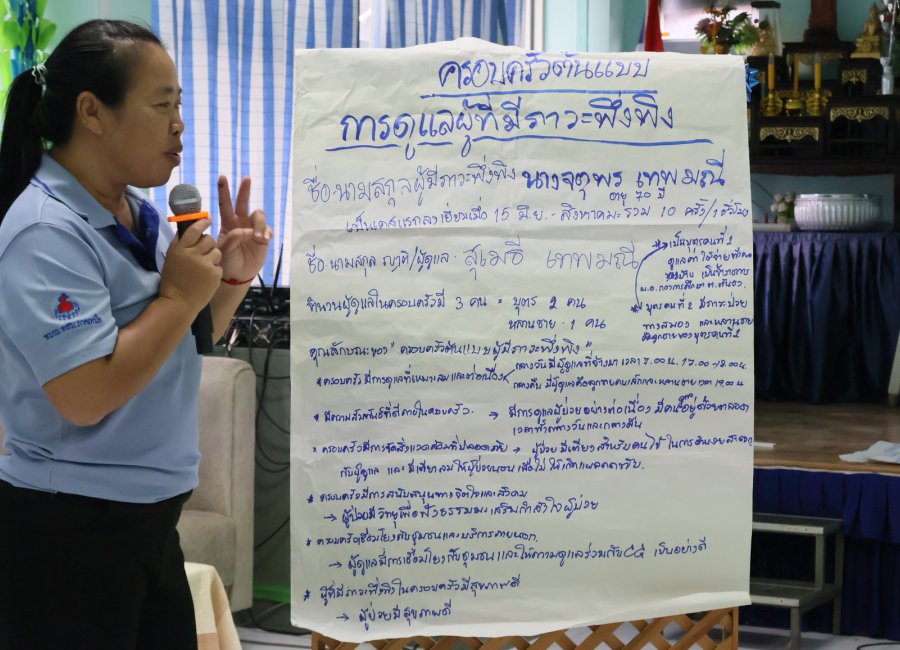 ครอบครัวต้นแบบ
การดูแลผู้ที่มีภาวะพึ่งพิง
ชื่อ-นามสกุลผู้มีภาวะพึ่งพิง นางจตุพร เทพมณี
อายุ 70 ปี
15 มิ.ย.- สิงหาคม รวม 10 ครั้ง/1 ชั่วโมง
ชื่อ-นามสกุล ญาติ/ผู้ดูแล - สุเมธี เทพมณี
* เป็นบุตรคนที่ 1
จำนวนผู้ดูแลในครอบครัวมี 3 คน = บุตร 2 คน
หลานชาย - 1 คน
* บุตรคนที่ 2 มีภาวะป่วย
ทางสมอง และหลานชาย
คุณลักษณะของ "ครอบครัวต้นแบบผู้มีภาวะพึ่งพิง"
* ครอบครัวมีการดูแลที่เหมาะสมและต่อเนื่อง
กลางวันมีผู้ดูแลที่จ้างมา เวลา 7.00 น. 17.00 -18.00 น.
* มีความสัมพันธ์ที่ดีภายในครอบครัว. → มีการดูแลผู้ป่วยอย่างต่อเนื่อง มีคนอยู่ด้วยตลอด
เวลาทั้งกลางวันและกลางคืน
* ครอบครัวมีการจัดสิ่งแวดล้อมที่ปลอดภัย → ผู้ป่วยมีเตียงสำหรับคนไข้ ในการอำนวยสะดวก
กับผู้ดูแล และมีเตียงลมให้ผู้ป่วยนอนเพื่อไม่ให้เกิดแผลกดทับ.
* ครอบครัวมีการสนับสนุนทางจิตใจและสังคม
→ ผู้ป่วยมีวิทยุเพื่อฟังธรรมมะเสริมกำลังใจผู้ป่วย
* ครอบครัวเชื่อมโยงกับชุมชนและบริการภายนอก.
→ ผู้ดูแลมีการเชื่อมโยงกับชุมชนและให้ความดูแลร่วมกับ CG เป็นอย่างดี
* ผู้ที่มีภาวะพึ่งพิงในครอบครัวมีสุขภาพดี
→ ผู้ป่วยมีสุขภาพดี